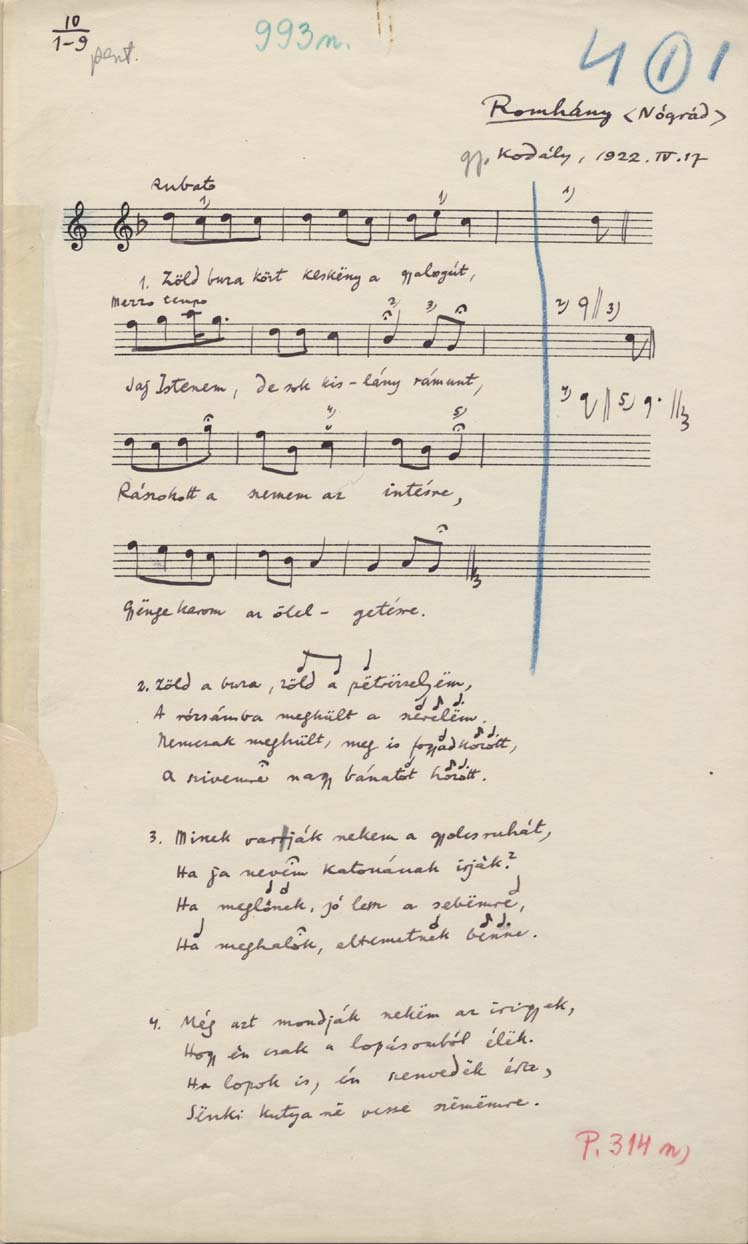 10
1-9
pent.
993n.
Romhány <Nógrád>
gy. Kodály, 1922. IV. 17
Rubato
1)
1)
1)
1. Zöld buza közt keskëny a gyalogút,
Mezzo tempo
2) 3)
2) 3)
Jaj Istenem, de sok kis-lány rámunt,
4) 5)
4) 5)
Rászokott a szemem az intésre,
Gyënge karom az ölel - getésre.
2. Zöld a buza, zöld a pëtrëzselyëm,
A rózsámba meghült a szërelëm.
Nemcsak meghült, meg is fogyadkozott,
A szivemre nagy bánatot hozott.
3. Minek varrják nekem a gyolcsruhát,
Ha ja nevem katonának irják?
Ha meglőnek, jó lesz a sebëmre,
Ha meghalok, eltemetnek benne.
4. Még azt mondják nekëm az irigyek,
Hogy én csak a lopásombúl élëk.
Ha lopok is, én szenvedëk érte,
Sënki kutya në vesse szëmëmre.
P. 314 n)